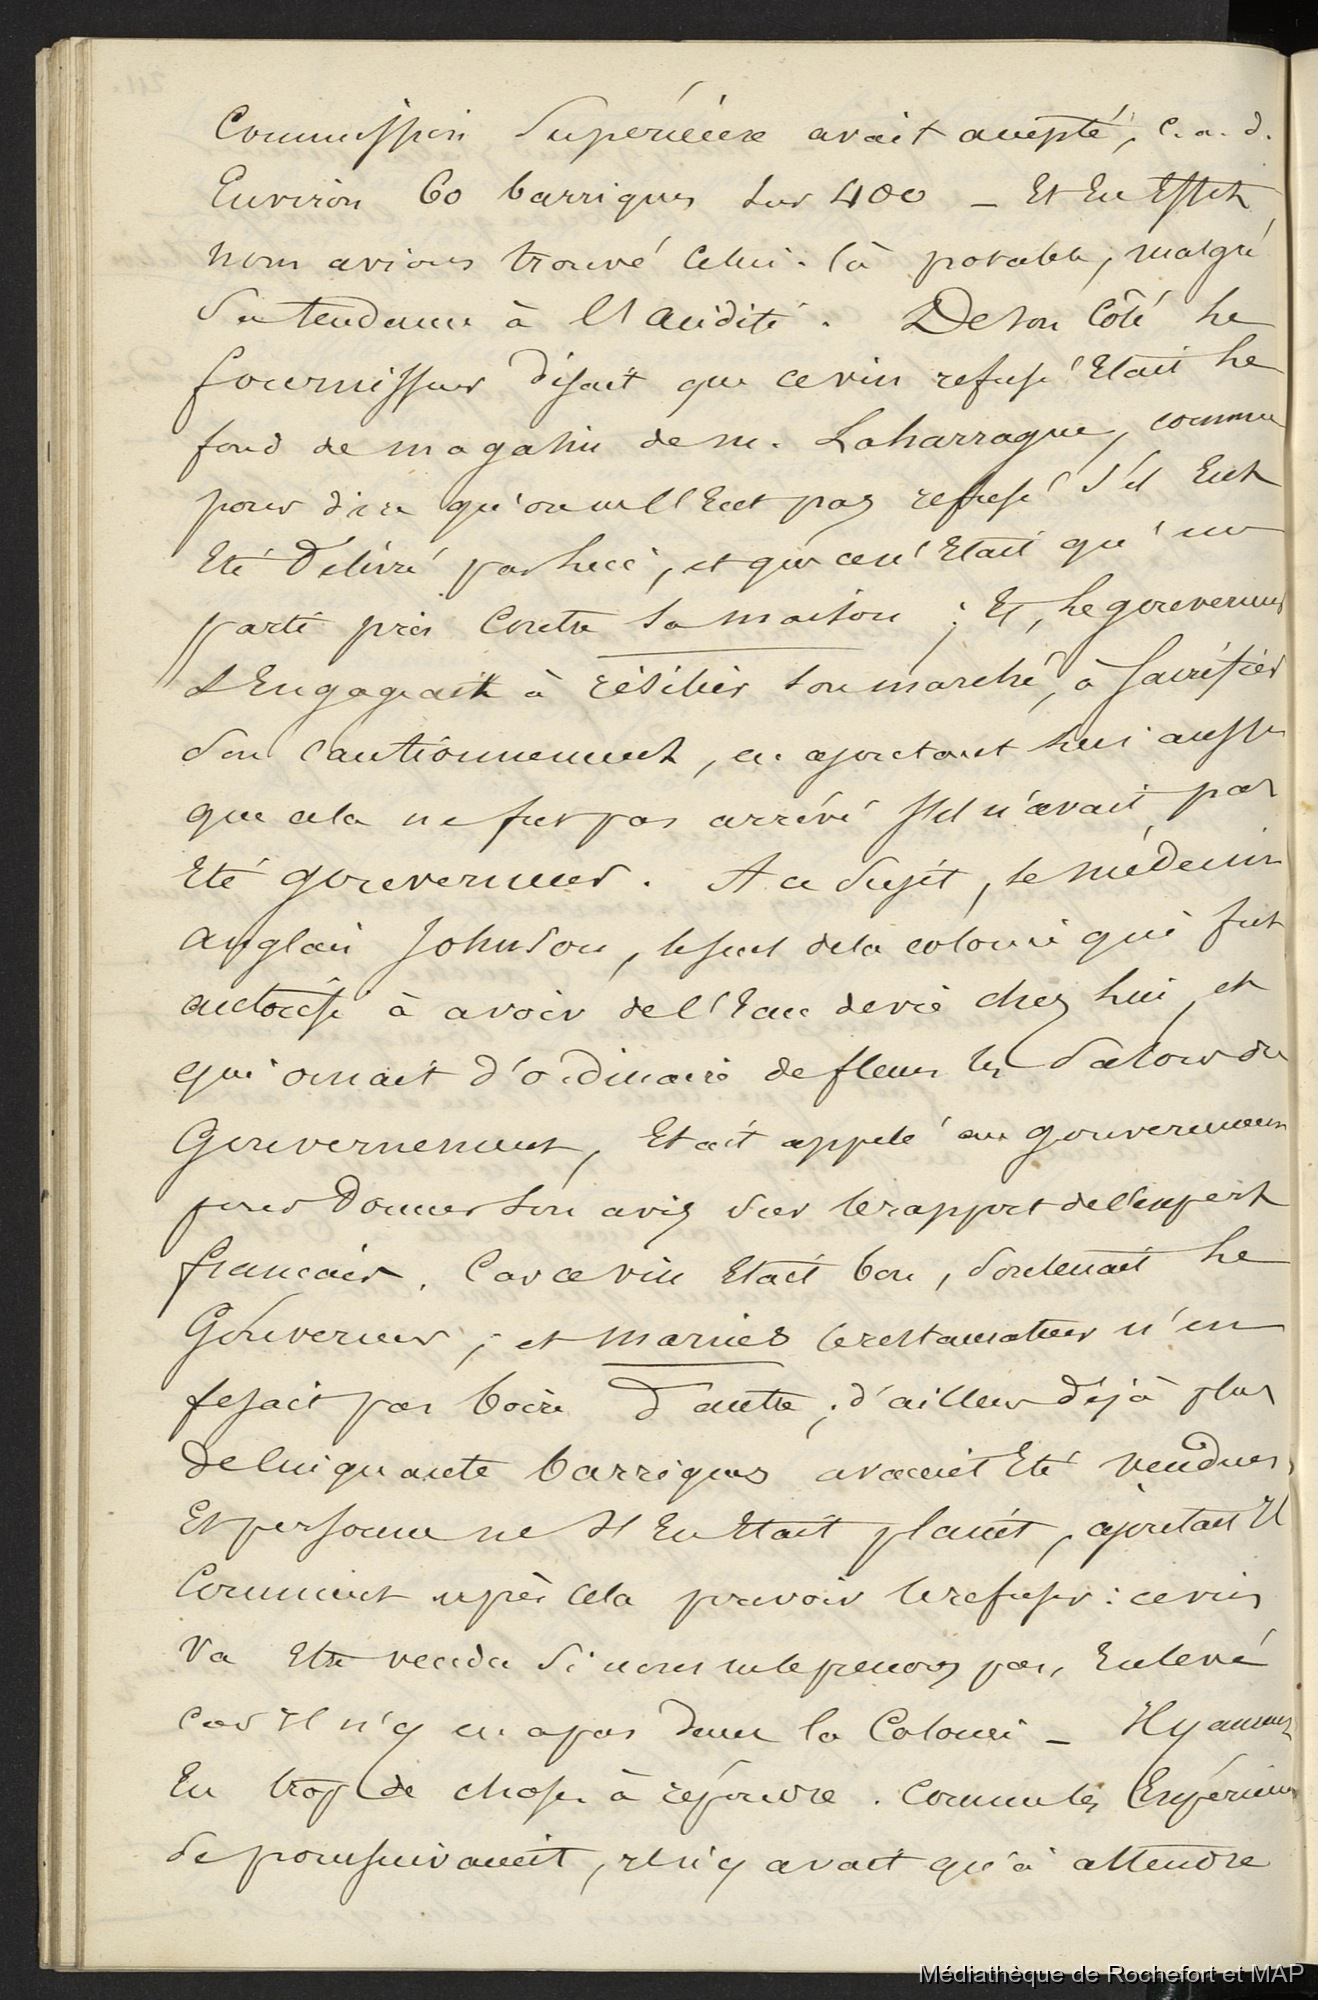 Commission Supérieure avait accepté, c. a. d.
Environ 60 barriques sur 400 _ Et En Effet
nous avions trouvé Celui-là potable, malgré
Sa tendance à l'acidité. De son Côté le
fournisseur disait que ce vin refusé Etait le
fond de magasin de m. Laharrague, comme
pour dire qu'on ne l'Eut pas refusé s'il Eut
Eté Délivré par lui, et que ce n'Etait qu'un
parti pris Contre sa maison ; Et, le gouverneur
s'Engageait à résilier son marché, à Sacrifier
Son Cautionnement, en ajoutant lui aussi
que cela ne fut pas arrivé s'il n'avait pas
Eté gouverneur. A ce Sujet, le médecin
anglais Johnson, le seul de la colonie qui fut
autorisé à avoir de l'Eau de vie chez lui, et
qui ornait d'ordinaire de fleurs les Salons du
Gouvernement, Etait appelé au gouvernement
pour Donner son avis sur le rapport de l'expert
français. Car ce vin Etait bon, Soutenait le
Gouverneur ; et marnier le restaurateur n'en
fesait pas boire D'autre ; d'ailleurs déjà plus
de Cinquante barriques avaient Eté vendues,
Et personne ne s'En Etait plaint, ajoutait Il
Comment après Cela pouvoir le refuser : ce vin
va Etre vendu Si nous ne le prenons pas, Enlevé
Car Il n'y en a pas Dans la Colonie _ Il y aurait
En trop de choses à répondre. Comme les Expériences
Se poursuivaient, Il n'y avait qu'à attendre
Médiathèque de Rochefort et MAP